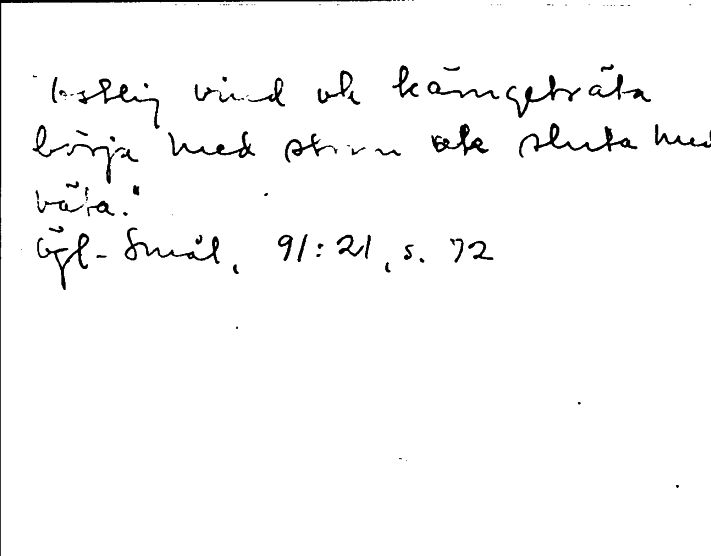 "ostlig vind ok kärngeträta
börja med storm ok sluta med
väta."
Ögl-Smål, 91:21, s. 72